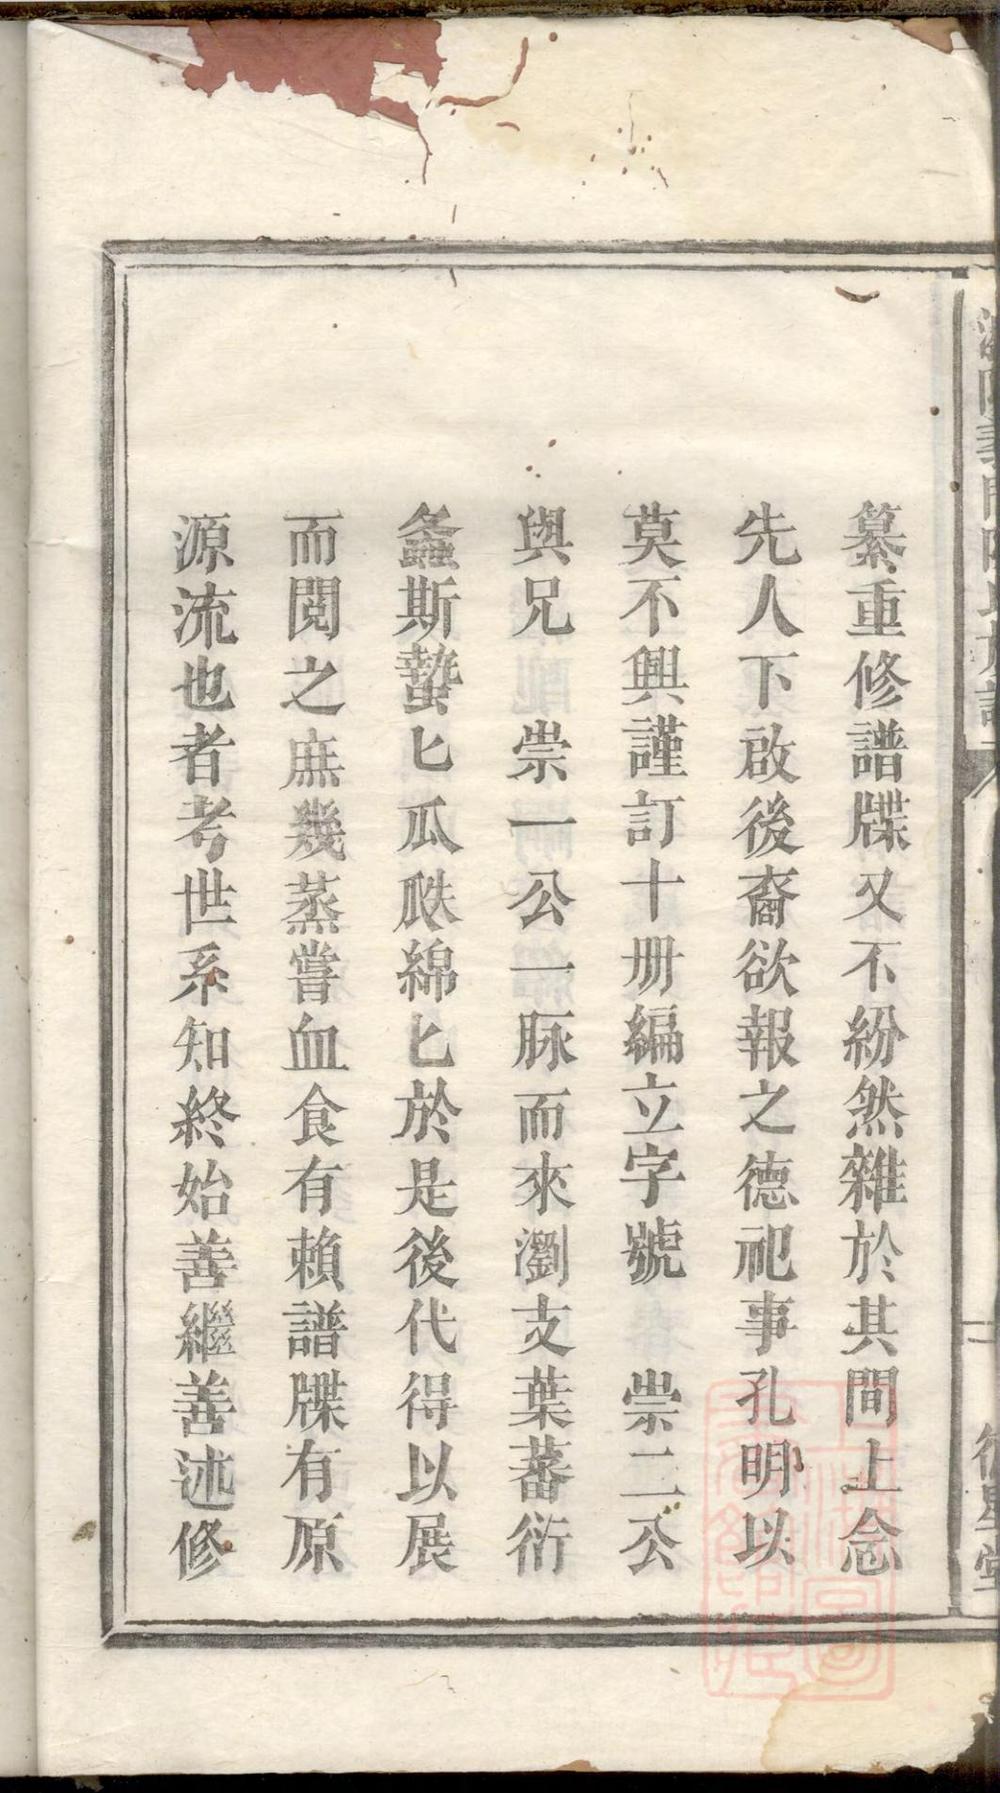 纂重修譜牒又不紛然雜於其間上念
先人下啟後裔欲報之德祀事孔明以
莫不興謹訂十册編立字號　崇二公
與兄　崇一公一脉而來瀏支葉蕃衍
螽斯蟄匕瓜瓞綿匕於是後代得以展
而閱之庶幾蒸嘗血食有賴譜牒有原
源流也者考世系知終始善繼善述修